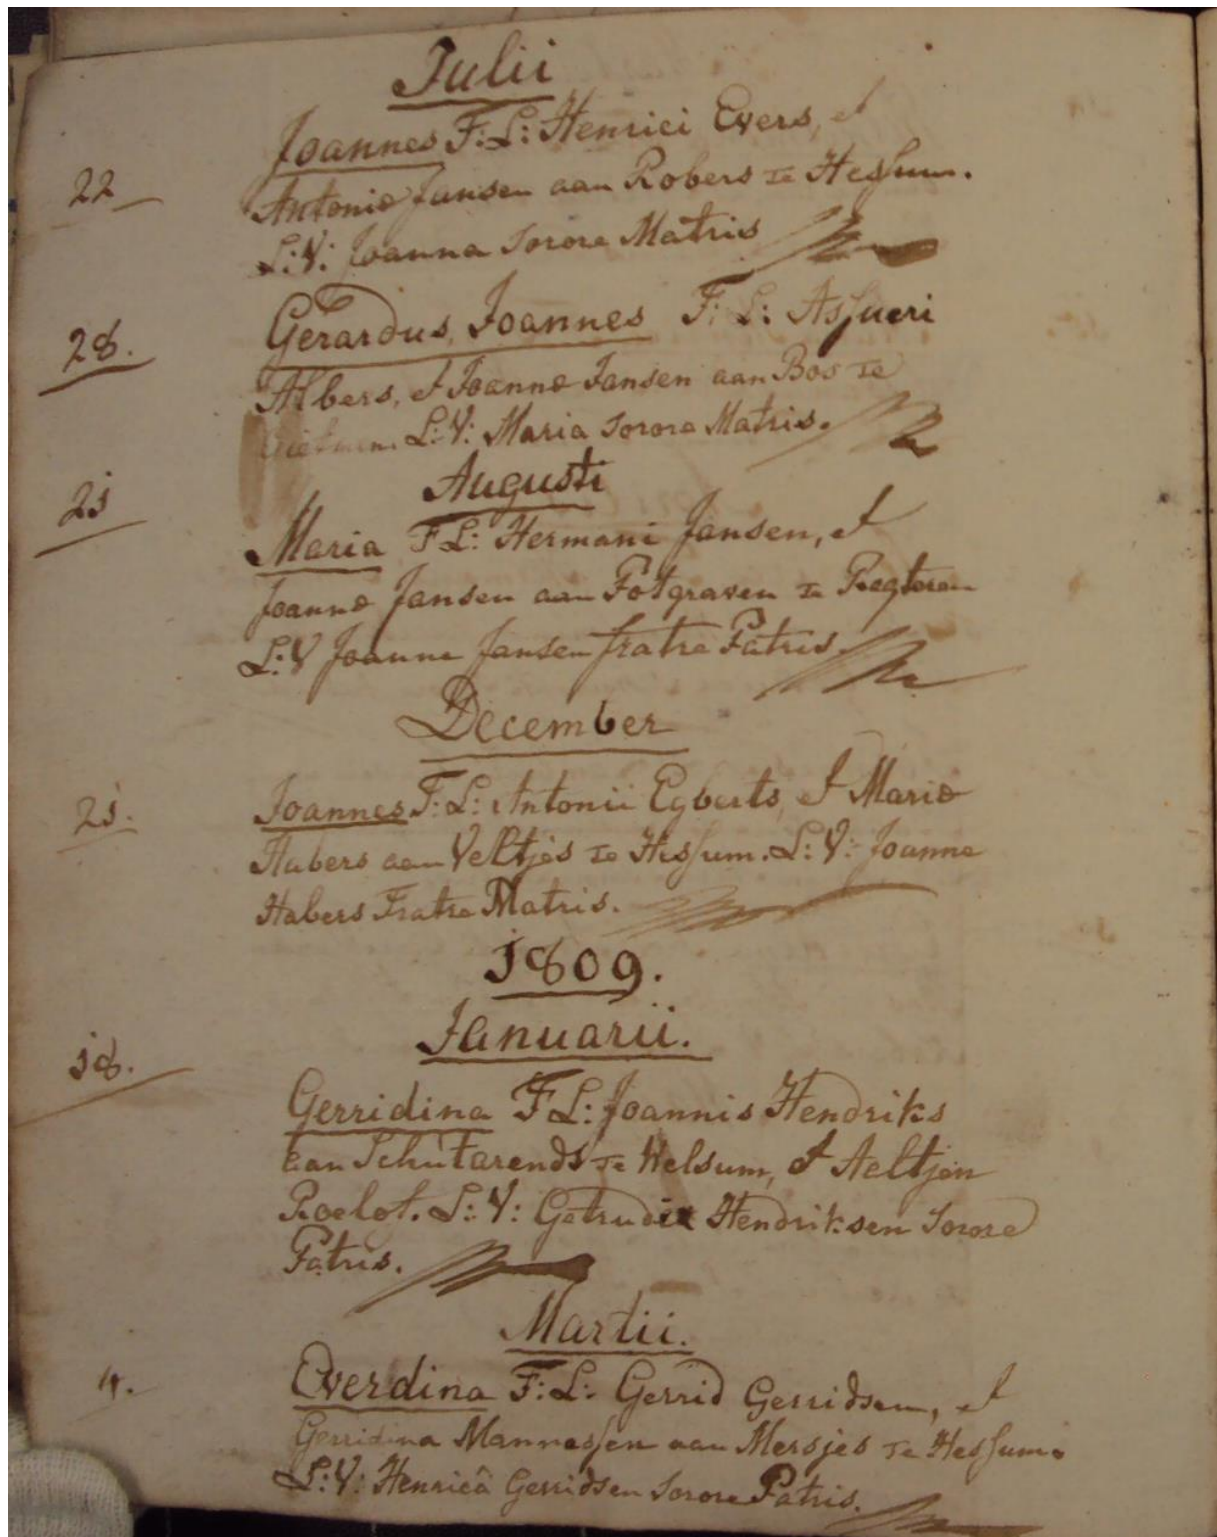 Julii
22
Joannes F: L: Henrici Evers, et
Antoniæ Jansen aan Robers te Hessum.
L: V: Joanna Sorore Matris
28.
Gerardus, Joannes F: L: Assueri
Albers, et Joannæ Jansen aan Bos te
L: V: Maria Sorore Matris.
Augusti
21
Maria F L: Hermani Jansen, et
Joannæ Jansen aan Potgraven te Regteren
L: V Joanne Jansen fratre Patris.
December
21.
Joannes F: L: Antonii Egberts, et Mariæ
Habers aan Veltjes te Hessum. L: V: Joanne
Habers Fratre Matris.
1809.
Januarii.
18.
Gerridina F L: Joannis Hendriks
aan Schutarends te Welsum, et Aeltjen
Roelof. L: V: Getrudis Hendriksen Sorore
Patris.
Martii.
4.
Everdina F: L: Gerrid Gerridsen, et
Gerridina Mannessen aan Mersjes te Hessum.
L: V: Henricâ Gerridsen Sorore Patris.